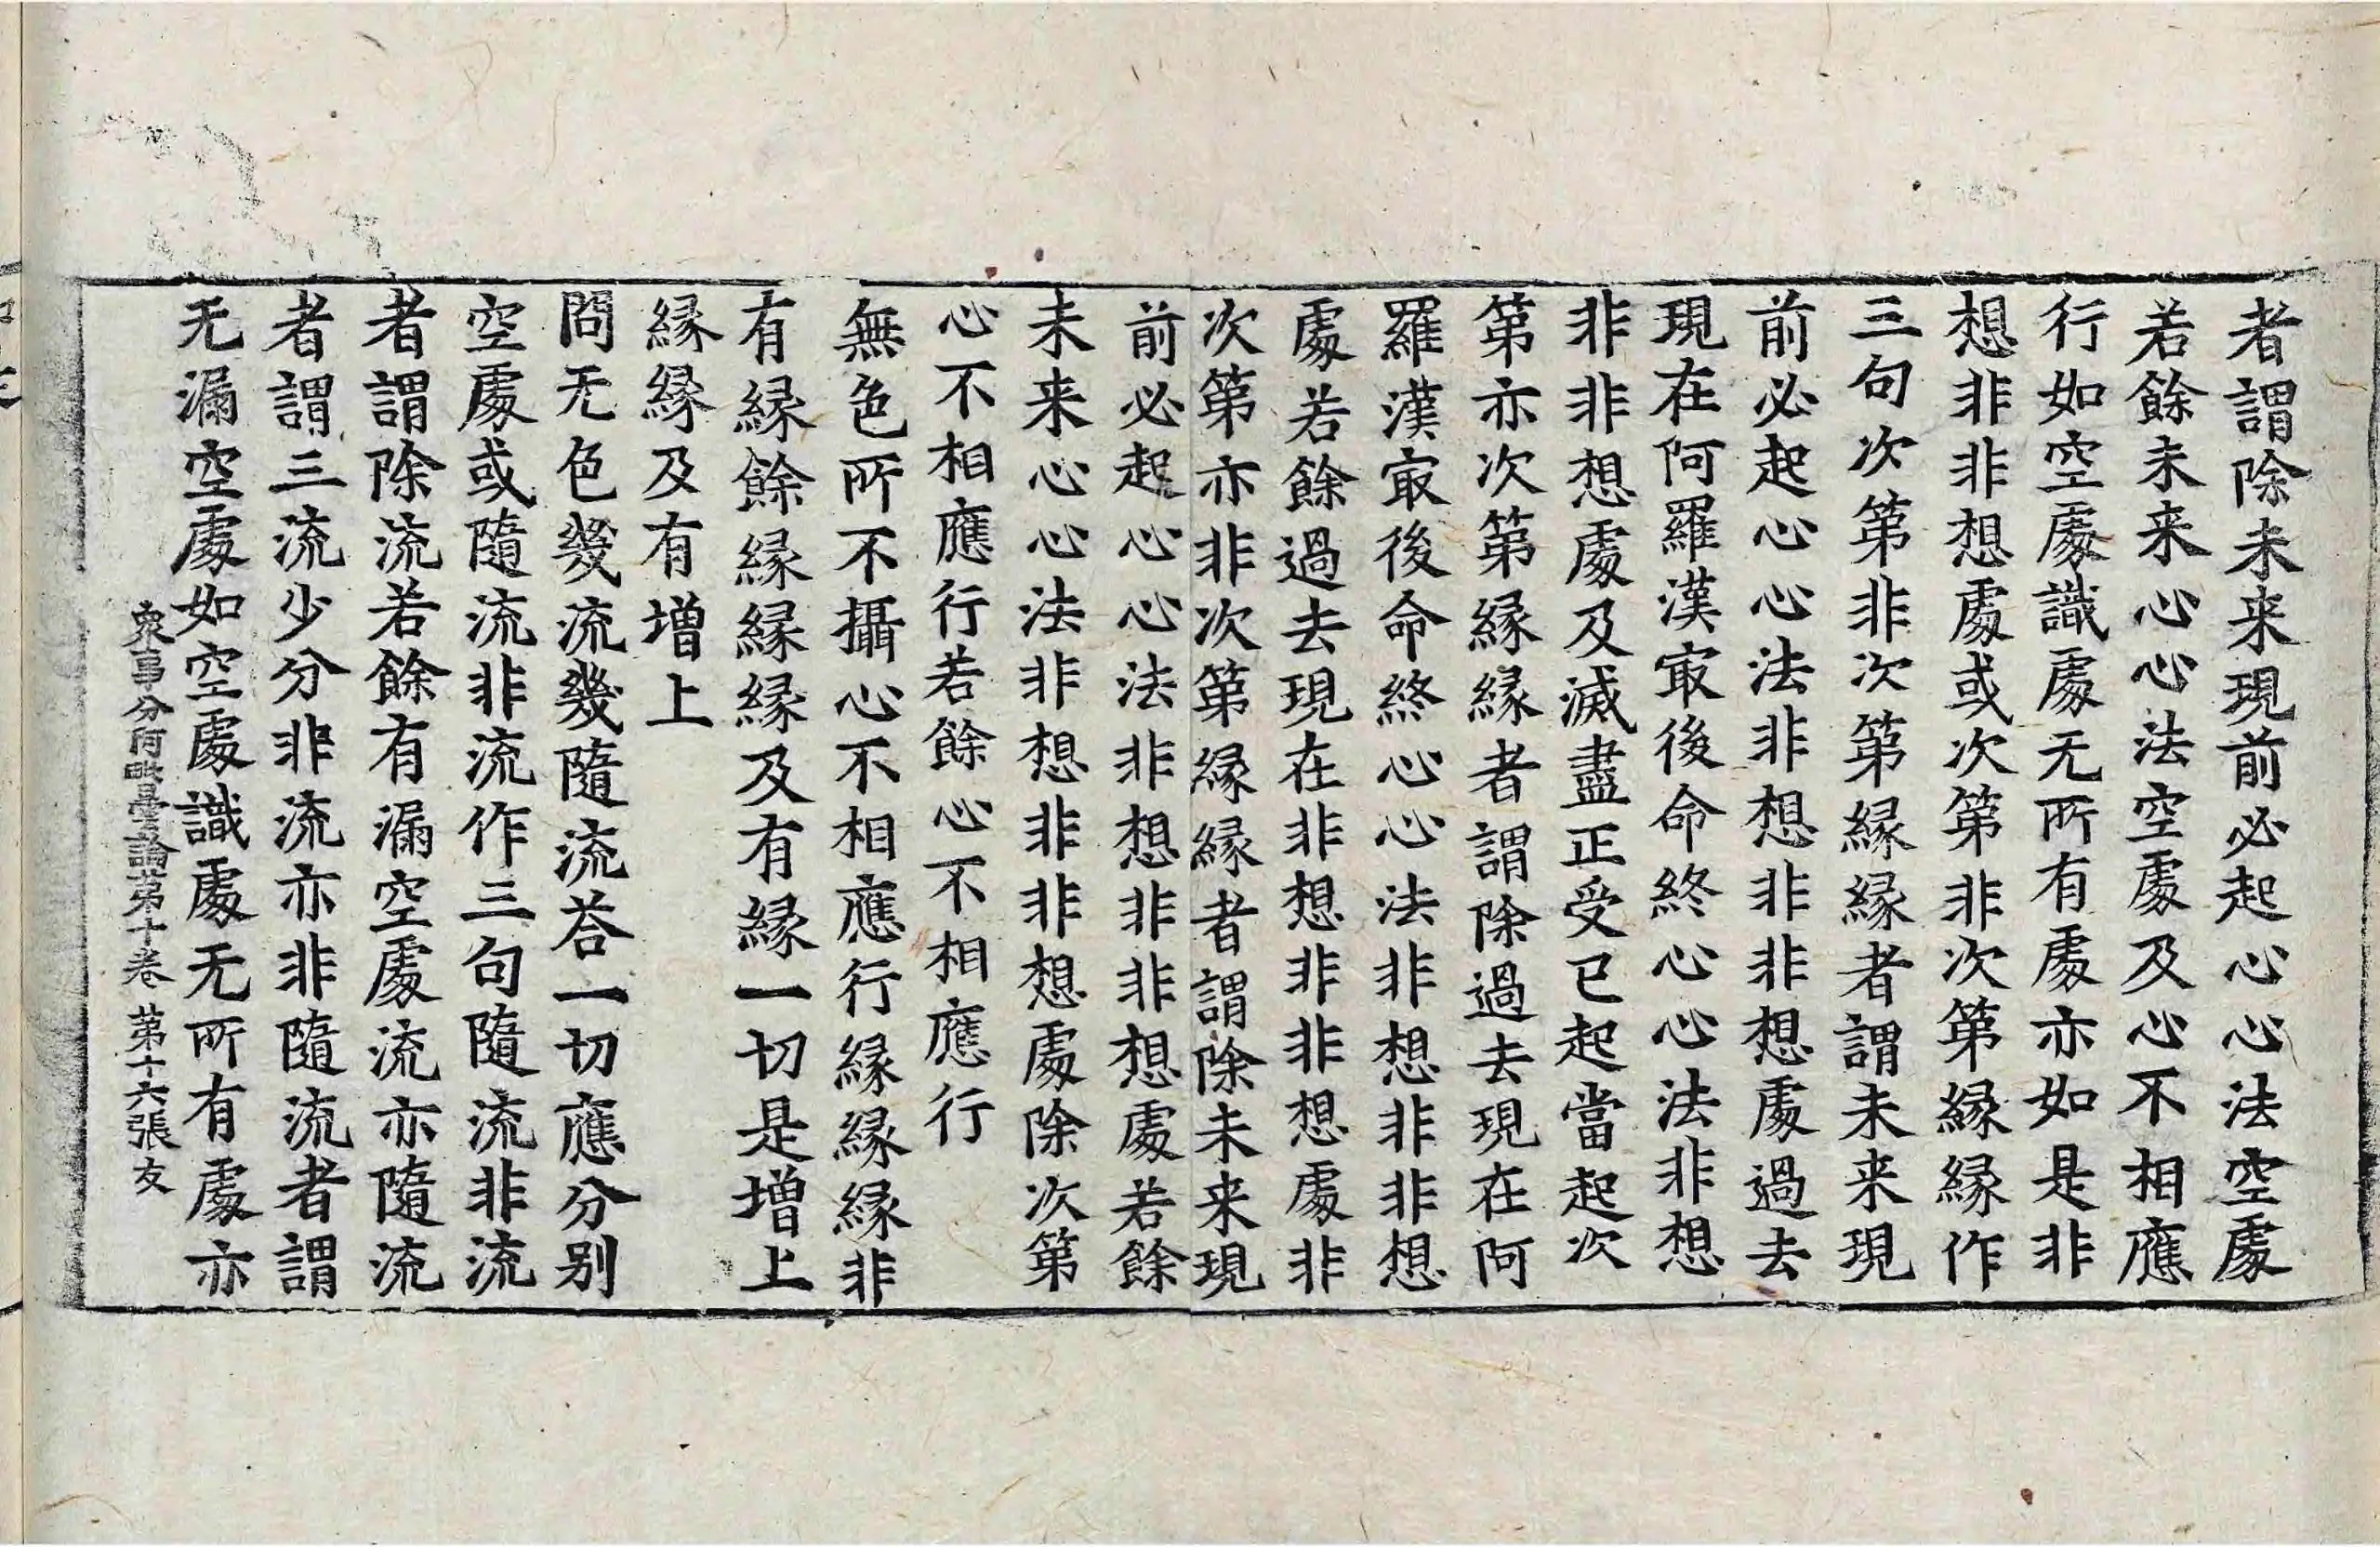 者謂除未来現前必起心心法空處
若餘未来心心法空處及心不相應
行如空處識處无所有處亦如是非
想非非想處或次第非次第緣緣作
三句次第非次第緣緣者謂未来現
前必起心心法非想非非想處過去
現在阿羅漢㝡後命終心心法非想
非非想處及滅盡正受已起當起次
第亦次第緣緣者謂除過去現在阿
羅漢㝡後命終心心法非想非非想
處若餘過去現在非想非非想處非
次第亦非次第緣緣者謂除未来現
前必起心心法非想非非想處若餘
未来心心法非想非非想處除次第
心不相應行若餘心不相應行
無色所不攝心不相應行緣緣緣非
有緣餘緣緣緣及有緣一切是增上
緣緣及有增上
問无色幾流幾隨流荅一切應分別
空處或隨流非流作三句隨流非流
者謂除流若餘有漏空處流亦隨流
者謂三流少分非流亦非隨流者謂
无漏空處如空處識處无所有處亦
衆事分阿毗曇論第十卷 第十六張 友